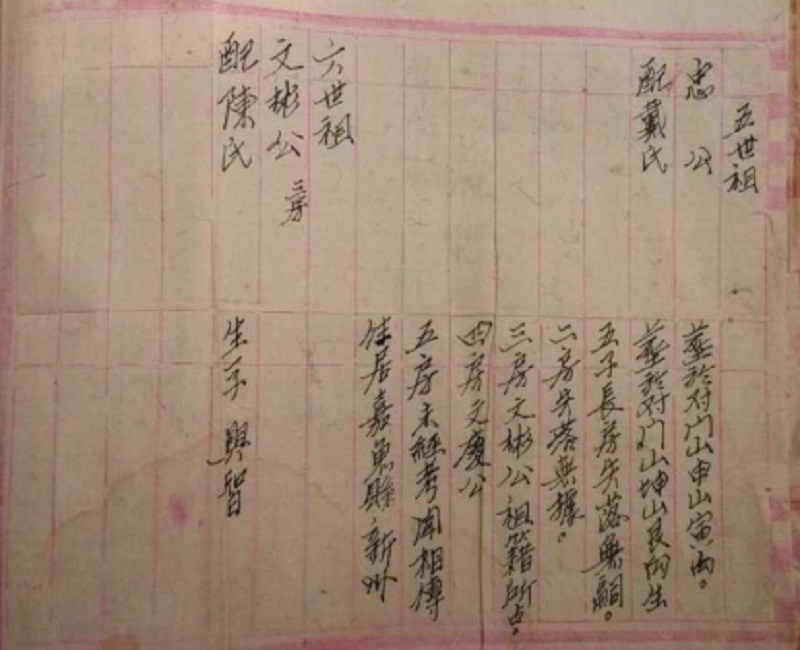 五世祖
忠 公
葬於对门山申山寅向。
配戴氏
葬於对门山坤山艮向生
五子長房失落無嗣。
二房失落無據。
三房文彬公祖籍所
四房文慶公
五房未經考閱相傳
住居嘉魚縣新州
六世祖
文彬公 三房
配陳氏
生一子 興智